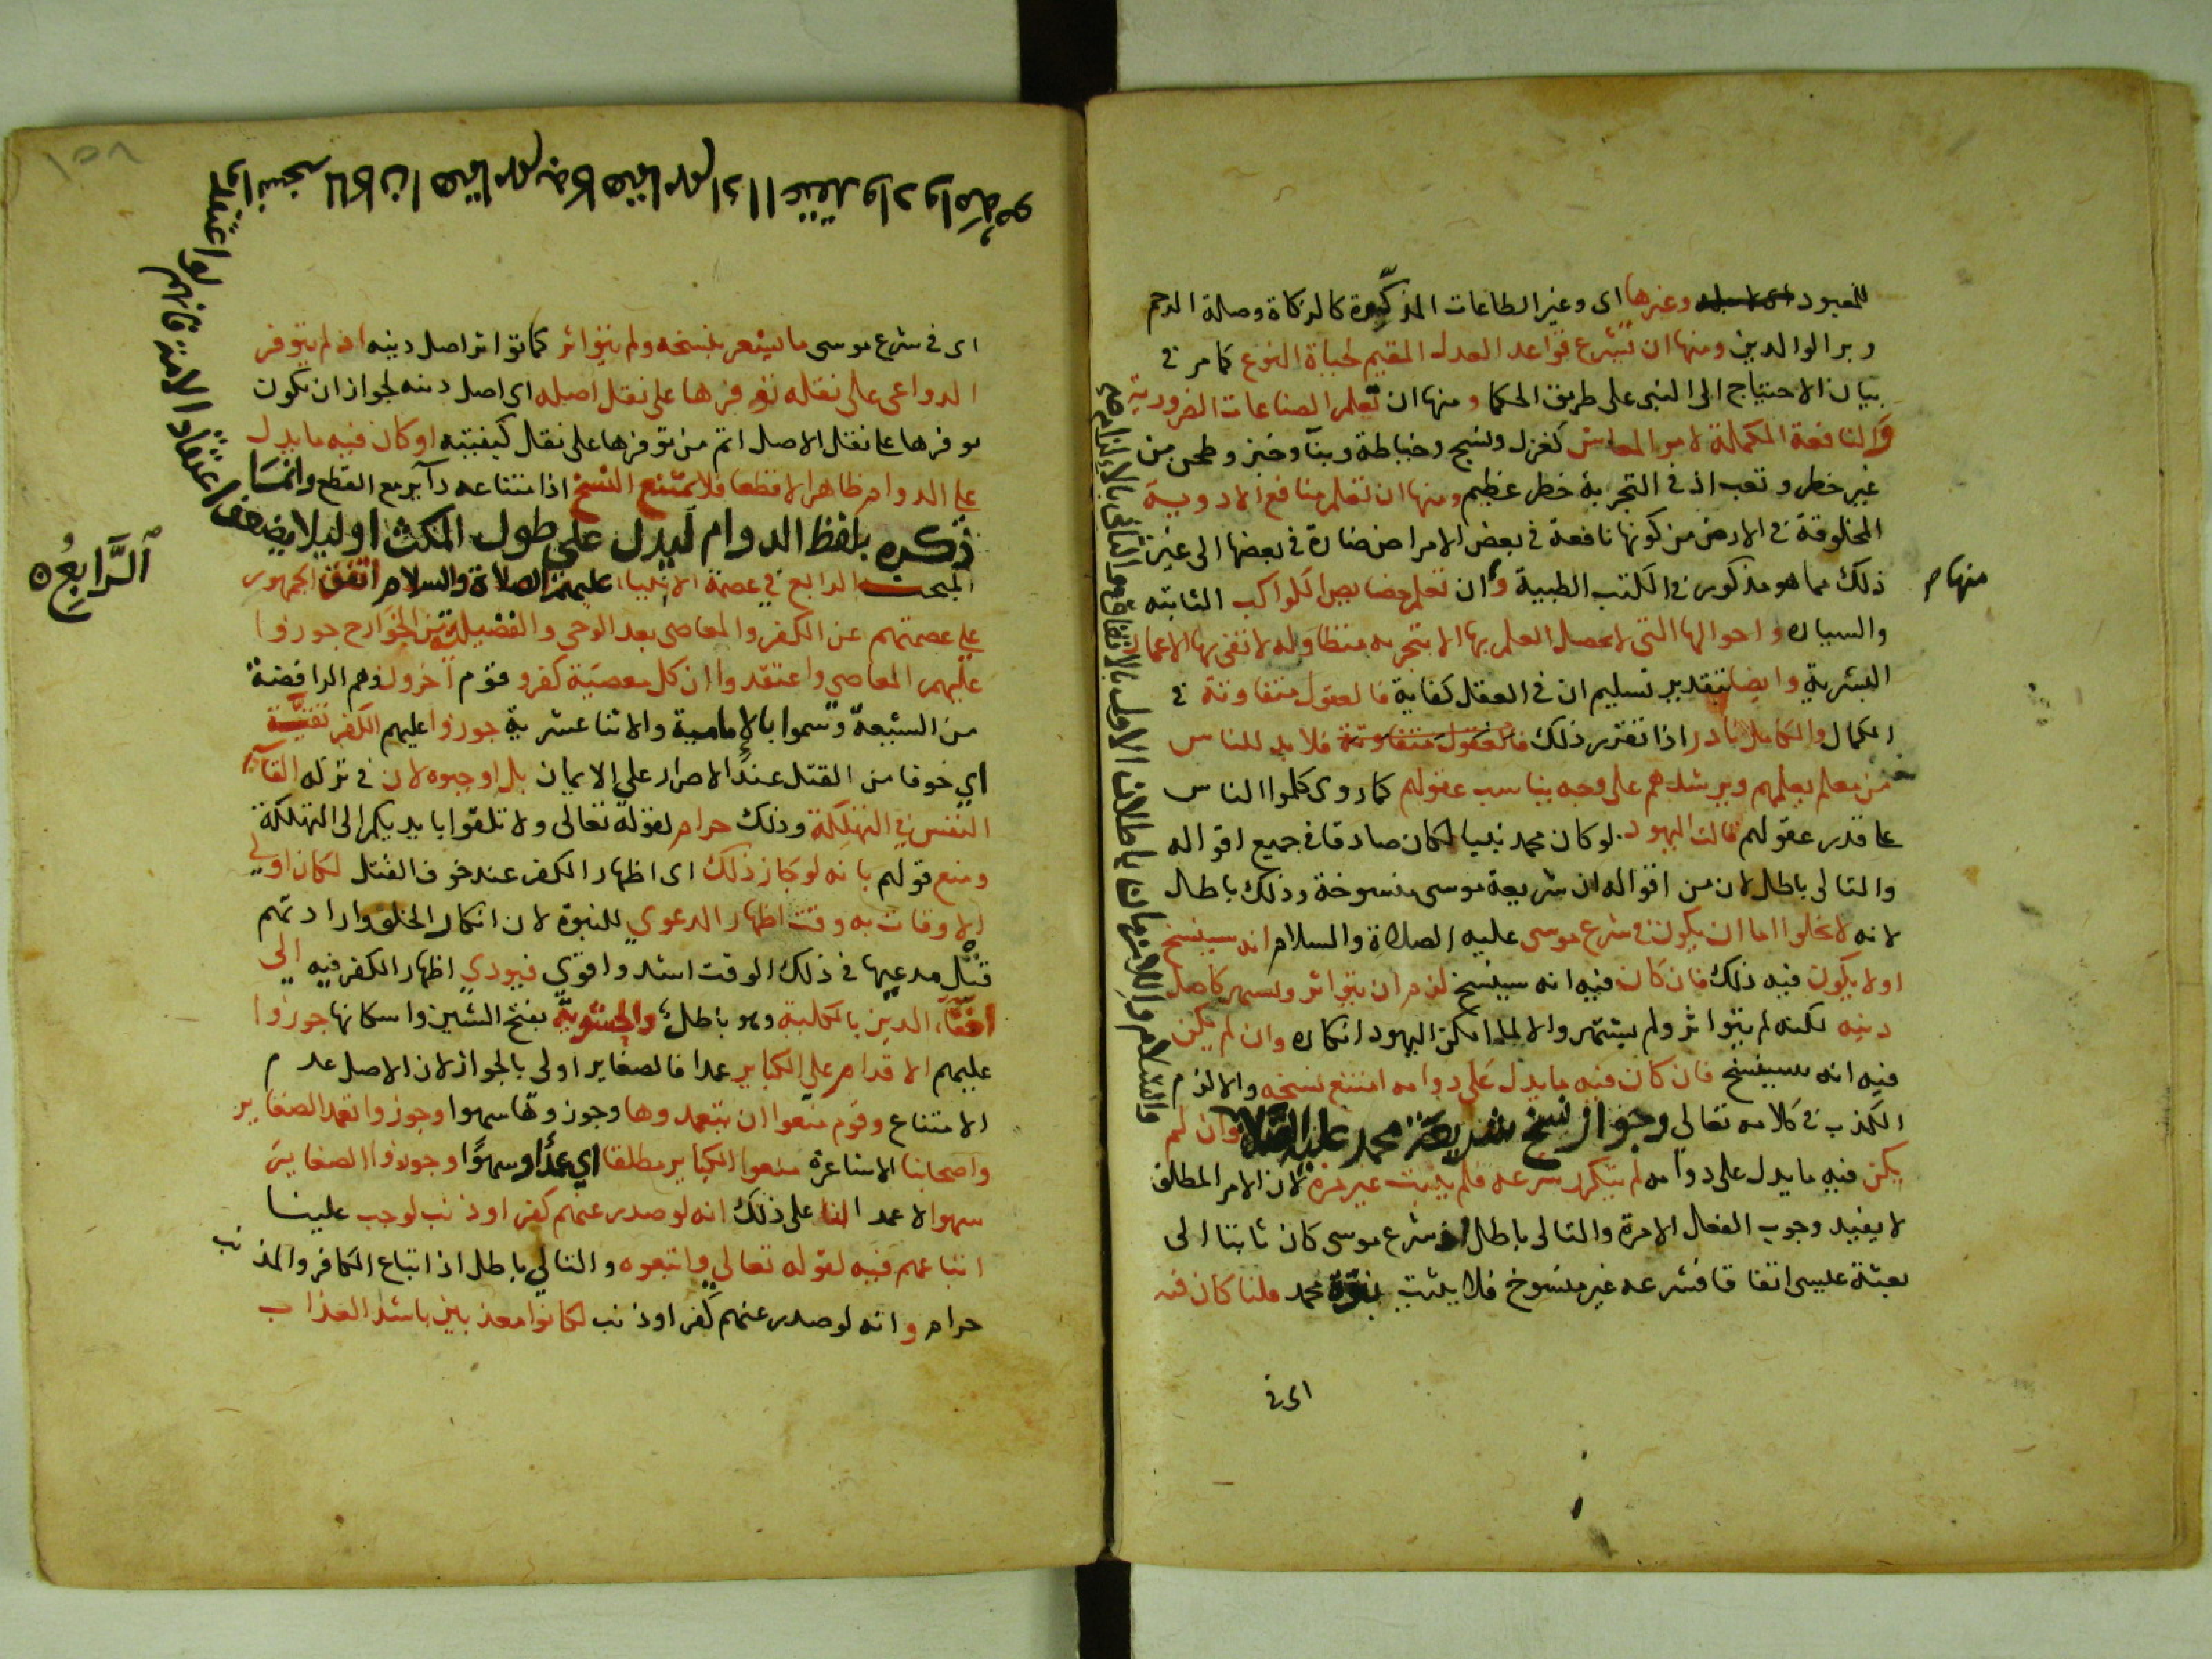 للمعبود وغيرها اى وغير الطاعات المذكورة كالزكاة وصلة الرحم
وبر الوالدين ومنها ان يشرع قواعد العدل المقيم لحياة النوع كما مر فى
بيان الاحتياج الى النبى على طريق الحكما ومنها ان تعلم الصناعات الضرورية
والنافعة المكملة لامر المعاش كغزل ونسج وخياطة وبنآ وخبز وطحن من
غير خطر وتعب اذ فى التجربة خطر عظيم ومنها ان تعلم منافع الادوية
المخلوقة فى الارض من كونها نافعة فى بعض الامراض ضارة فى بعضها الى غير
ذلك مما هو مذكور فى الكتب الطبية وان تعلم خصايص الكواكب الثابته
منها م
والسياره واحوالها التى لا يحصل العلم بها الا بتجربه متطاوله لا تفى بها الاعمار
البشرية وايضا بتقدير تسليم ان فى العقل كفاية فالعقول متفاوتة فى
الكمال والكامل نادر اذا تقرر ذلك فالعقول متفاوتة فلا بد للناس
من معلم يعلمهم ويرشدهم على وجه يناسب عقولهم كما روى كلموا الناس
على قدر عقولهم قالت اليهود لو كان محمد نبيا لكان صادقا فى جميع اقواله
والتالى باطل لان من اقواله ان شريعة موسى منسوخة وذلك باطل
لانه لا يخلوا اما ان يكون فى شرع موسى عليه الصلاة والسلام انه سينسخ
اولا يكون فيه ذلك فان كان فيه انه سينسخ لزم ان يتواتر ويشتهر كاصل
دينه لكنه لم يتواتر ولم يشتهر والا لما امكن اليهود انكاره وان لم يكن
فيه انه سينسخ فان كان فيه ما يدل على دوامه امتنع نسخه والا لزم
الكذب فى كلامه تعالى وجواز نسخ شريعة محمد عليه الصلاة وان لم
والسلام واللازمان باطلان الاول بالاتفاق والثانى بالالزام صح
يكن فيه ما يدل على دوامه لم يتكرر شرعه فلم يثبت غير مرة لان الامر المطلق
لا يفيد وجوب الفعل الا مرة والتالى باطل اذ شرع موسى كان ثابتا الى
بعثة عيسى اتفاقا فشرعه غير منسوخ فلا يثبت نبوة محمد قلنا كان فيه
اى فى
اى فى شرع موسى ما يشعر بنسخه ولم يتواتر كما تواتر اصل دينه اذ لم يتوفر
الدواعى على نقله توفرها على نقل اصله اى اصل دينه لجواز ان تكون
توفرها على نقل الاصل اتم من توفرها على نقل كيفيته او كان فيه ما يدل
على الدوام ظاهرا لا قطعا فلا يمتنع النسخ اذ امتناعه دآير مع القطع وانما
ذكره بلفظ الدوام ليدل على طول المكث او ليلا يضعفوا
اعتقاد الامة فانهم لو اعتقدوا
المبحث الرابع فى عصمة الانبيا عليهم الصلاة والسلام اتفق الجمهور
اَلرَّابِعُ
على عصمتهم عن الكفر والمعاصى بعد الوحى والفضيلية من الخوارج جوزوا
عليهم المعاصى واعتقدوا ان كل معصية كفر وقوم آخرون وهم الرافضة
من الشيعة وسموا بالإمامية والاثنا عشرية جوزوا عليهم الكفر تقية
اى خوفا من القتل عند الاصرار على الايمان بل اوجبوه لان فى تركه القآ
النفس فى التهلكة وذلك حرام لقوله تعالى ولا تلقوا بايديكم الى التهلكة
ومنع قولهم بانه لو جاز ذلك اى اظهار الكفر عند خوف القتل لكان اولى
الاوقات به وقت اظهار الدعوى للنبوة لان انكار الخلق وارادتهم
قتل مدعيها فى ذلك الوقت اشد واقوى فيودى اظهار الكفر فيه الى
اخفآ الدين بالكلية وهو باطل والحشوية بفتح الشين واسكانها جوزوا
عليهم الاقدام على الكباير عمدا فالصغاير اولى بالجواز لان الاصل عدم
الامتناع وقوم منعوا ان يتعمدوها وجوزوها سهوا وجوزوا تعمد الصغاير
واصحابنا الاشاعرة منعوا الكباير مطلقا اى عمدًا وسهوًا وجوزوا الصغاير
سهوا لا عمدا لنا على ذلك انه لو صدر عنهم كفر او ذنب لوجب علينا
اتباعهم فيه لقوله تعالى واتبعوه والتالى باطل اذ اتباع الكافر والمذنب
حرام وانه لو صدر عنهم كفر او ذنب لكانوا معذبين باشد العذاب